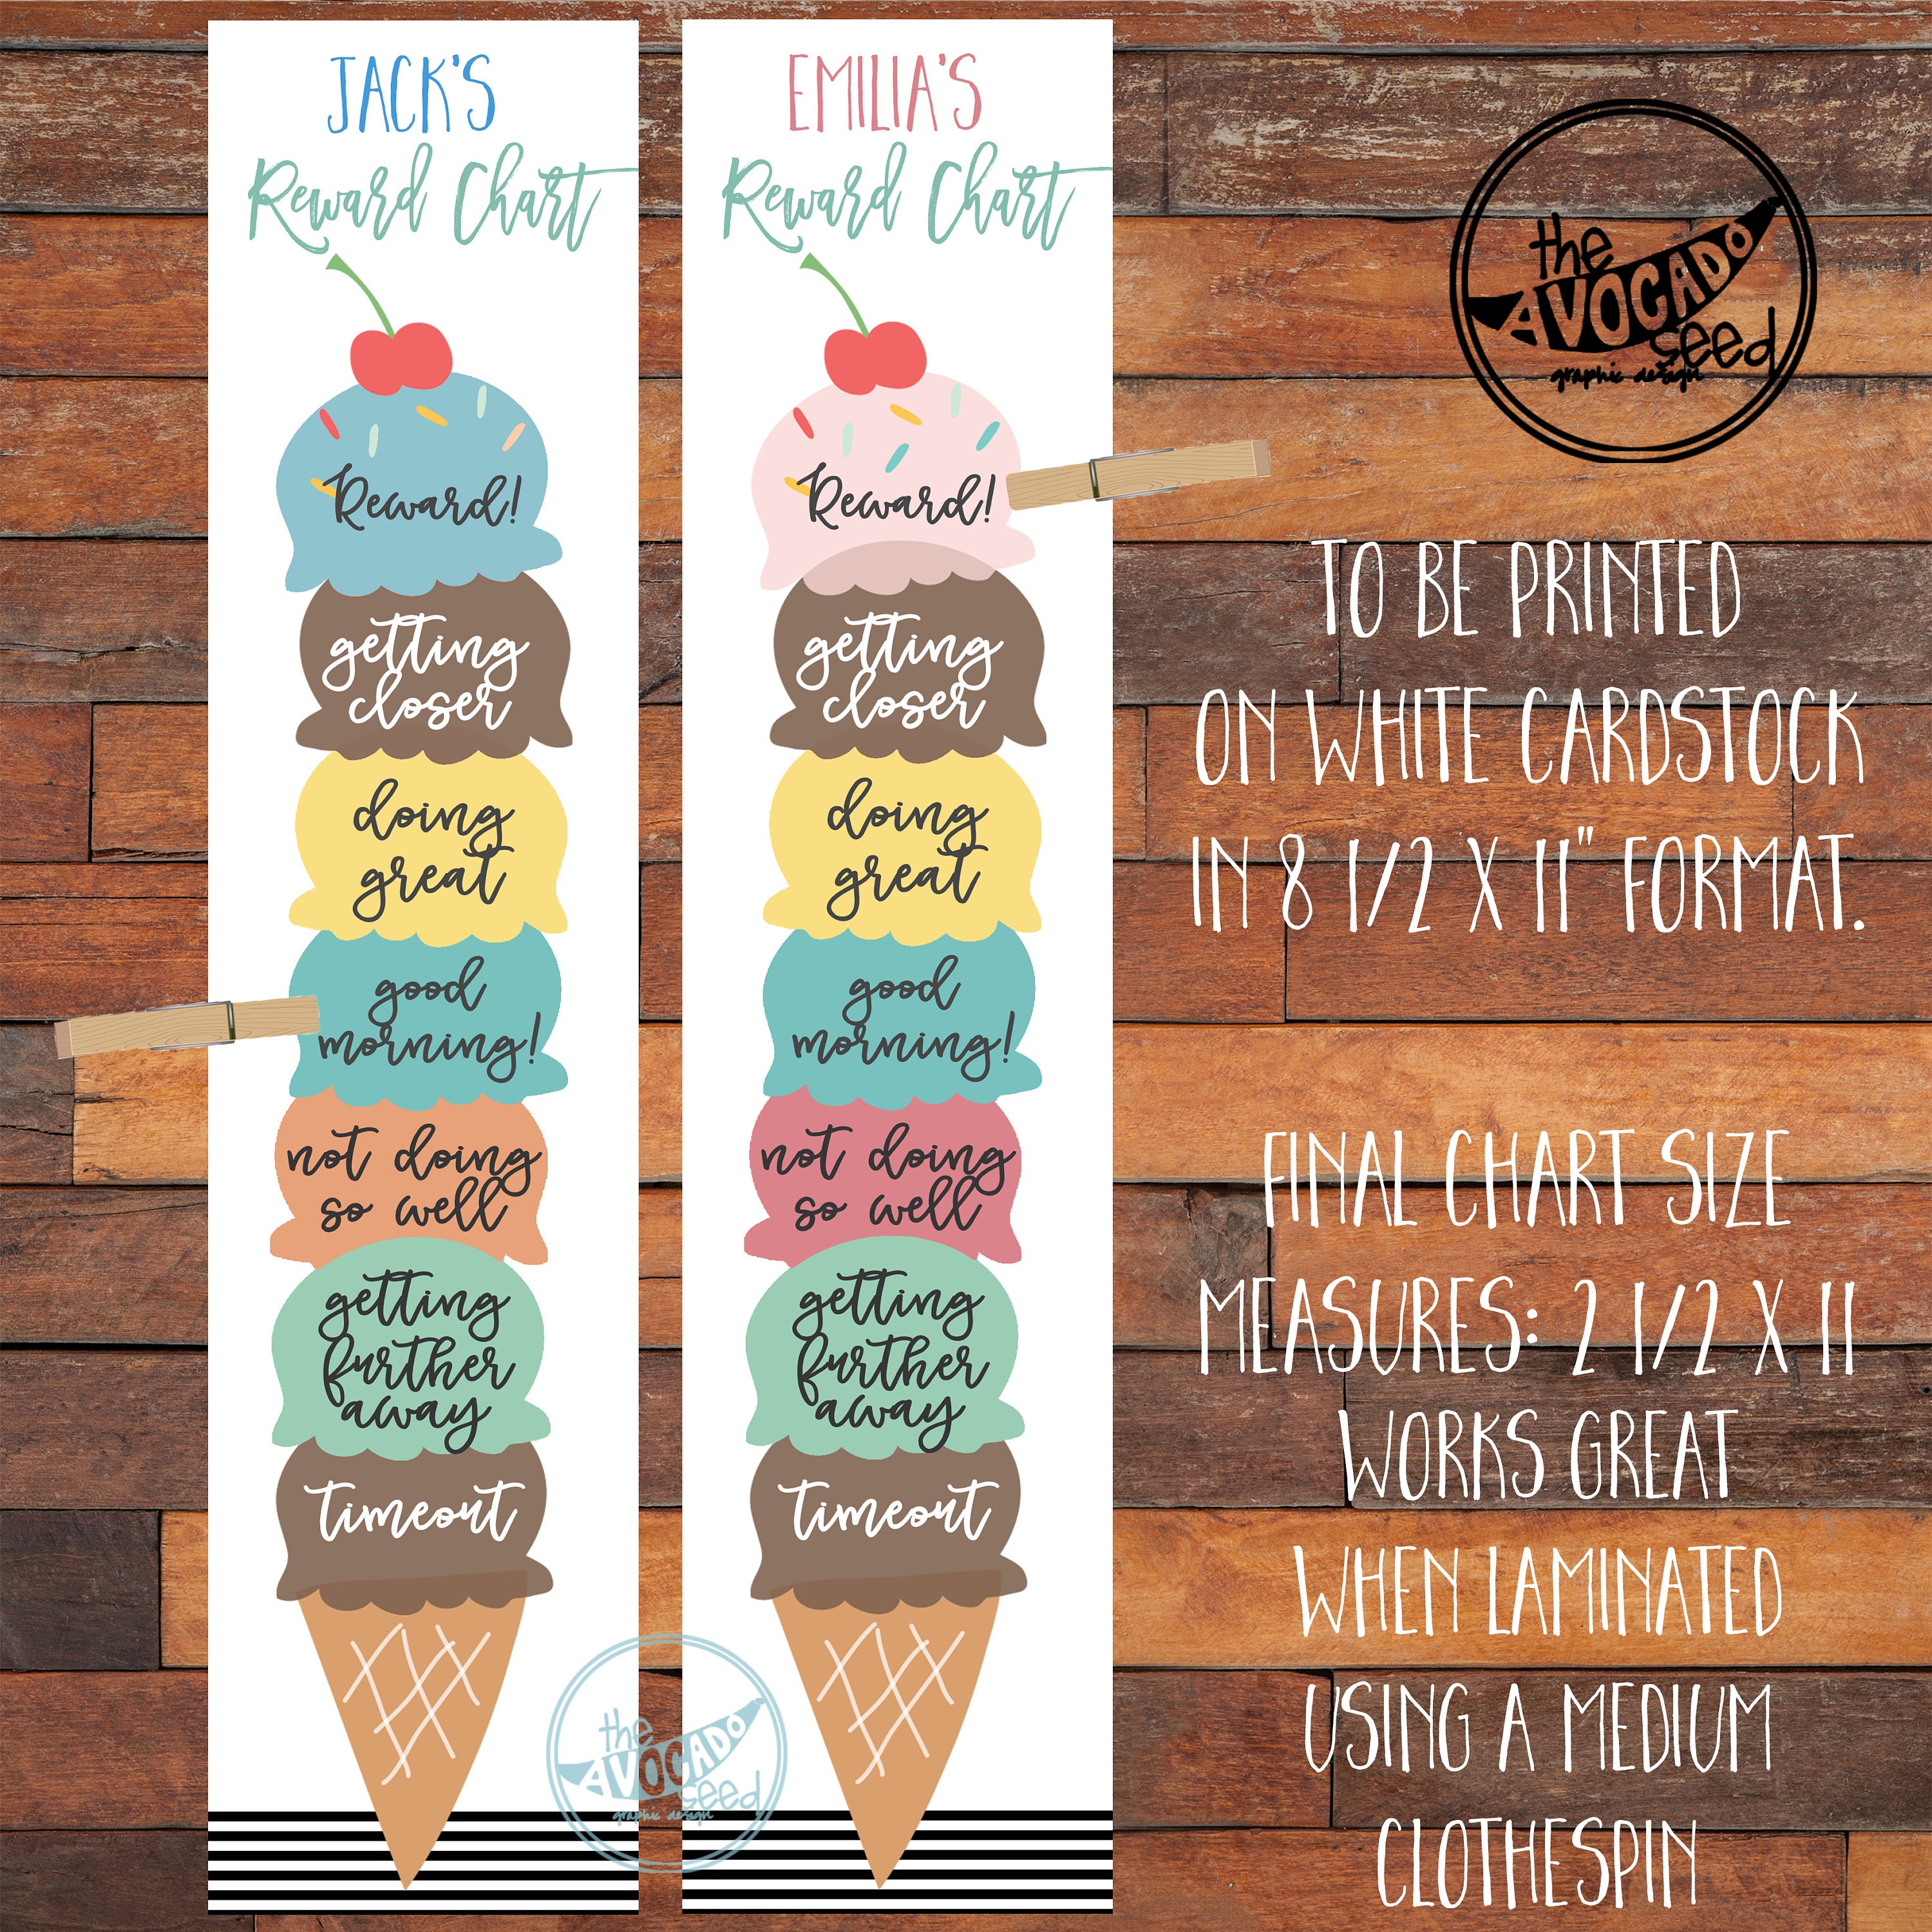 JACK'S
Reward Chart
Reward!
getting
closer
doing
great
good
morning!
not doing
so well
getting
further
away
timeout
EMILIA'S
Reward Chart
Reward!
getting
closer
doing
great
good
morning!
not doing
so well
getting
further
away
timeout
the
AVOCADO
seed
graphic design
the
AVOCADO
seed
graphic design
TO BE PRINTED
ON WHITE CARDSTOCK
IN 8 1/2 X 11" FORMAT.
FINAL CHART SIZE
MEASURES: 2 1/2 X 11
WORKS GREAT
WHEN LAMINATED
USING A MEDIUM
CLOTHESPIN